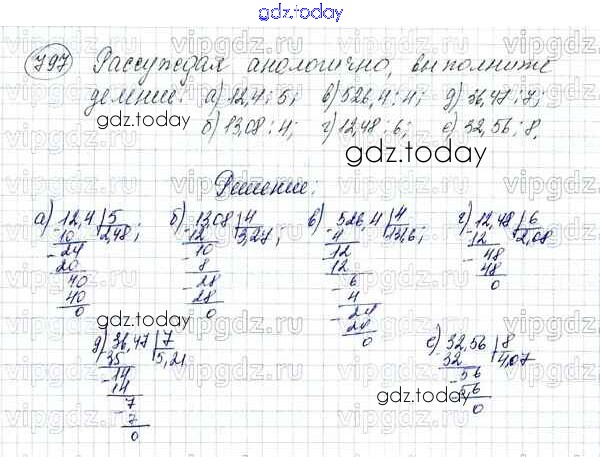 gdz.today
797 Рассуждая анологично, выполните
деление: а) 12,4 : 5; в) 526,4 : 4; д) 36,47 : 7;
б) 13,08 : 4; г) 12,48 : 6; е) 32,56 : 8.
gdz.today
Решение:
а) 12,4 5 б) 13,08 4 в) 526,4 4 г) 12,48 6
10 2,48; 12 3,27; 4 131,6; 12 2,08
24 10 12 48
20 8 12 48
40 28 6 0
40 28 4
0 0 24
24
0
gdz.today
д) 36,47 7 е) 32,56 8
35 5,21 32 4,07
14 56
14 56
7 0
7
0
gdz.today